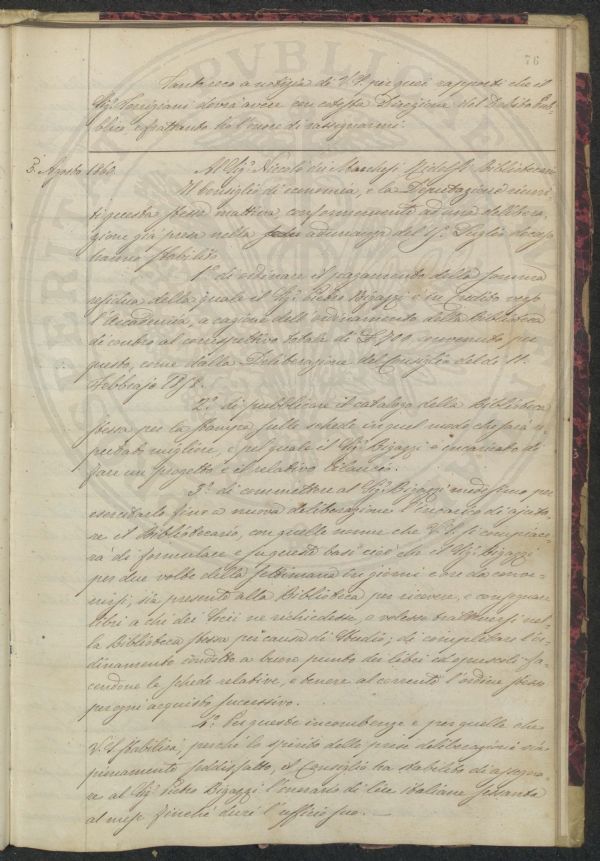 76
Tanto reco a notizia di V. S. per quei rapporti che il
Sig. Torrigiani dovrà avere con codesta Direzione del Debito Pub-
blico e frattanto ho l'onore di rassegnarmi.
3. Agosto 1860. Al Sig. Niccolò dei Marchesi Ridolfi Bibliotecario
Il Consiglio di economia, e la Deputazione riuni-
ti questa stessa mattina, conformemente ad una delibera-
zione già presa nella adunanza del Luglio decorso
hanno stabilito
1º. di ordinare il pagamento della somma
residua della quale il Sig. Pietro Bigazzi è in credito verso
l'Accademia, a cagione dell'ordinamento della Biblioteca
di contro al correspettivo totale di £. 700 convenuto per
questo, come dalla Deliberazione del Consiglio del dì 11.
Febbrajo 1858.
2º. di pubblicare il catalogo della Biblioteca
stessa per la stampa sulle schede in quel modo che sarà re-
putato migliore, e pel quale il Sig. Bigazzi è incaricato di
fare un progetto e il relativo bilancio.
3º. di commettere al Sig. Bigazzi medesimo per
esercitarlo fino a nuova deliberazione l'incarico di ajuta-
re il Bibliotecario, con quelle norme che V. S. si compiace-
rà di formulare e su queste basi cioè che il Sig. Bigazzi
per due volte della settimana in giorni e ore da conve-
nirsi, sia presente alla Biblioteca per ricevere, e consegnare
libri a chi dei Socii ne richiedesse, o volesse trattenersi nel-
la Biblioteca stessa per causa di studio; di completare l'or-
dinamento condotto a buon punto dei libri ed opuscoli fa-
cendone le schede relative, e tenere al corrente l'ordine stesso
per ogni acquisto successivo.
4º. Per queste incombenze e per quelle che
V. S. stabilirà, perché lo spirito delle prese deliberazioni sia
pienamente soddisfatto, il Consiglio ha stabilito di assegna-
re al Sig. Pietro Bigazzi l'onorario di lire italiane sessanta
al mese finché duri l'ufficio suo.